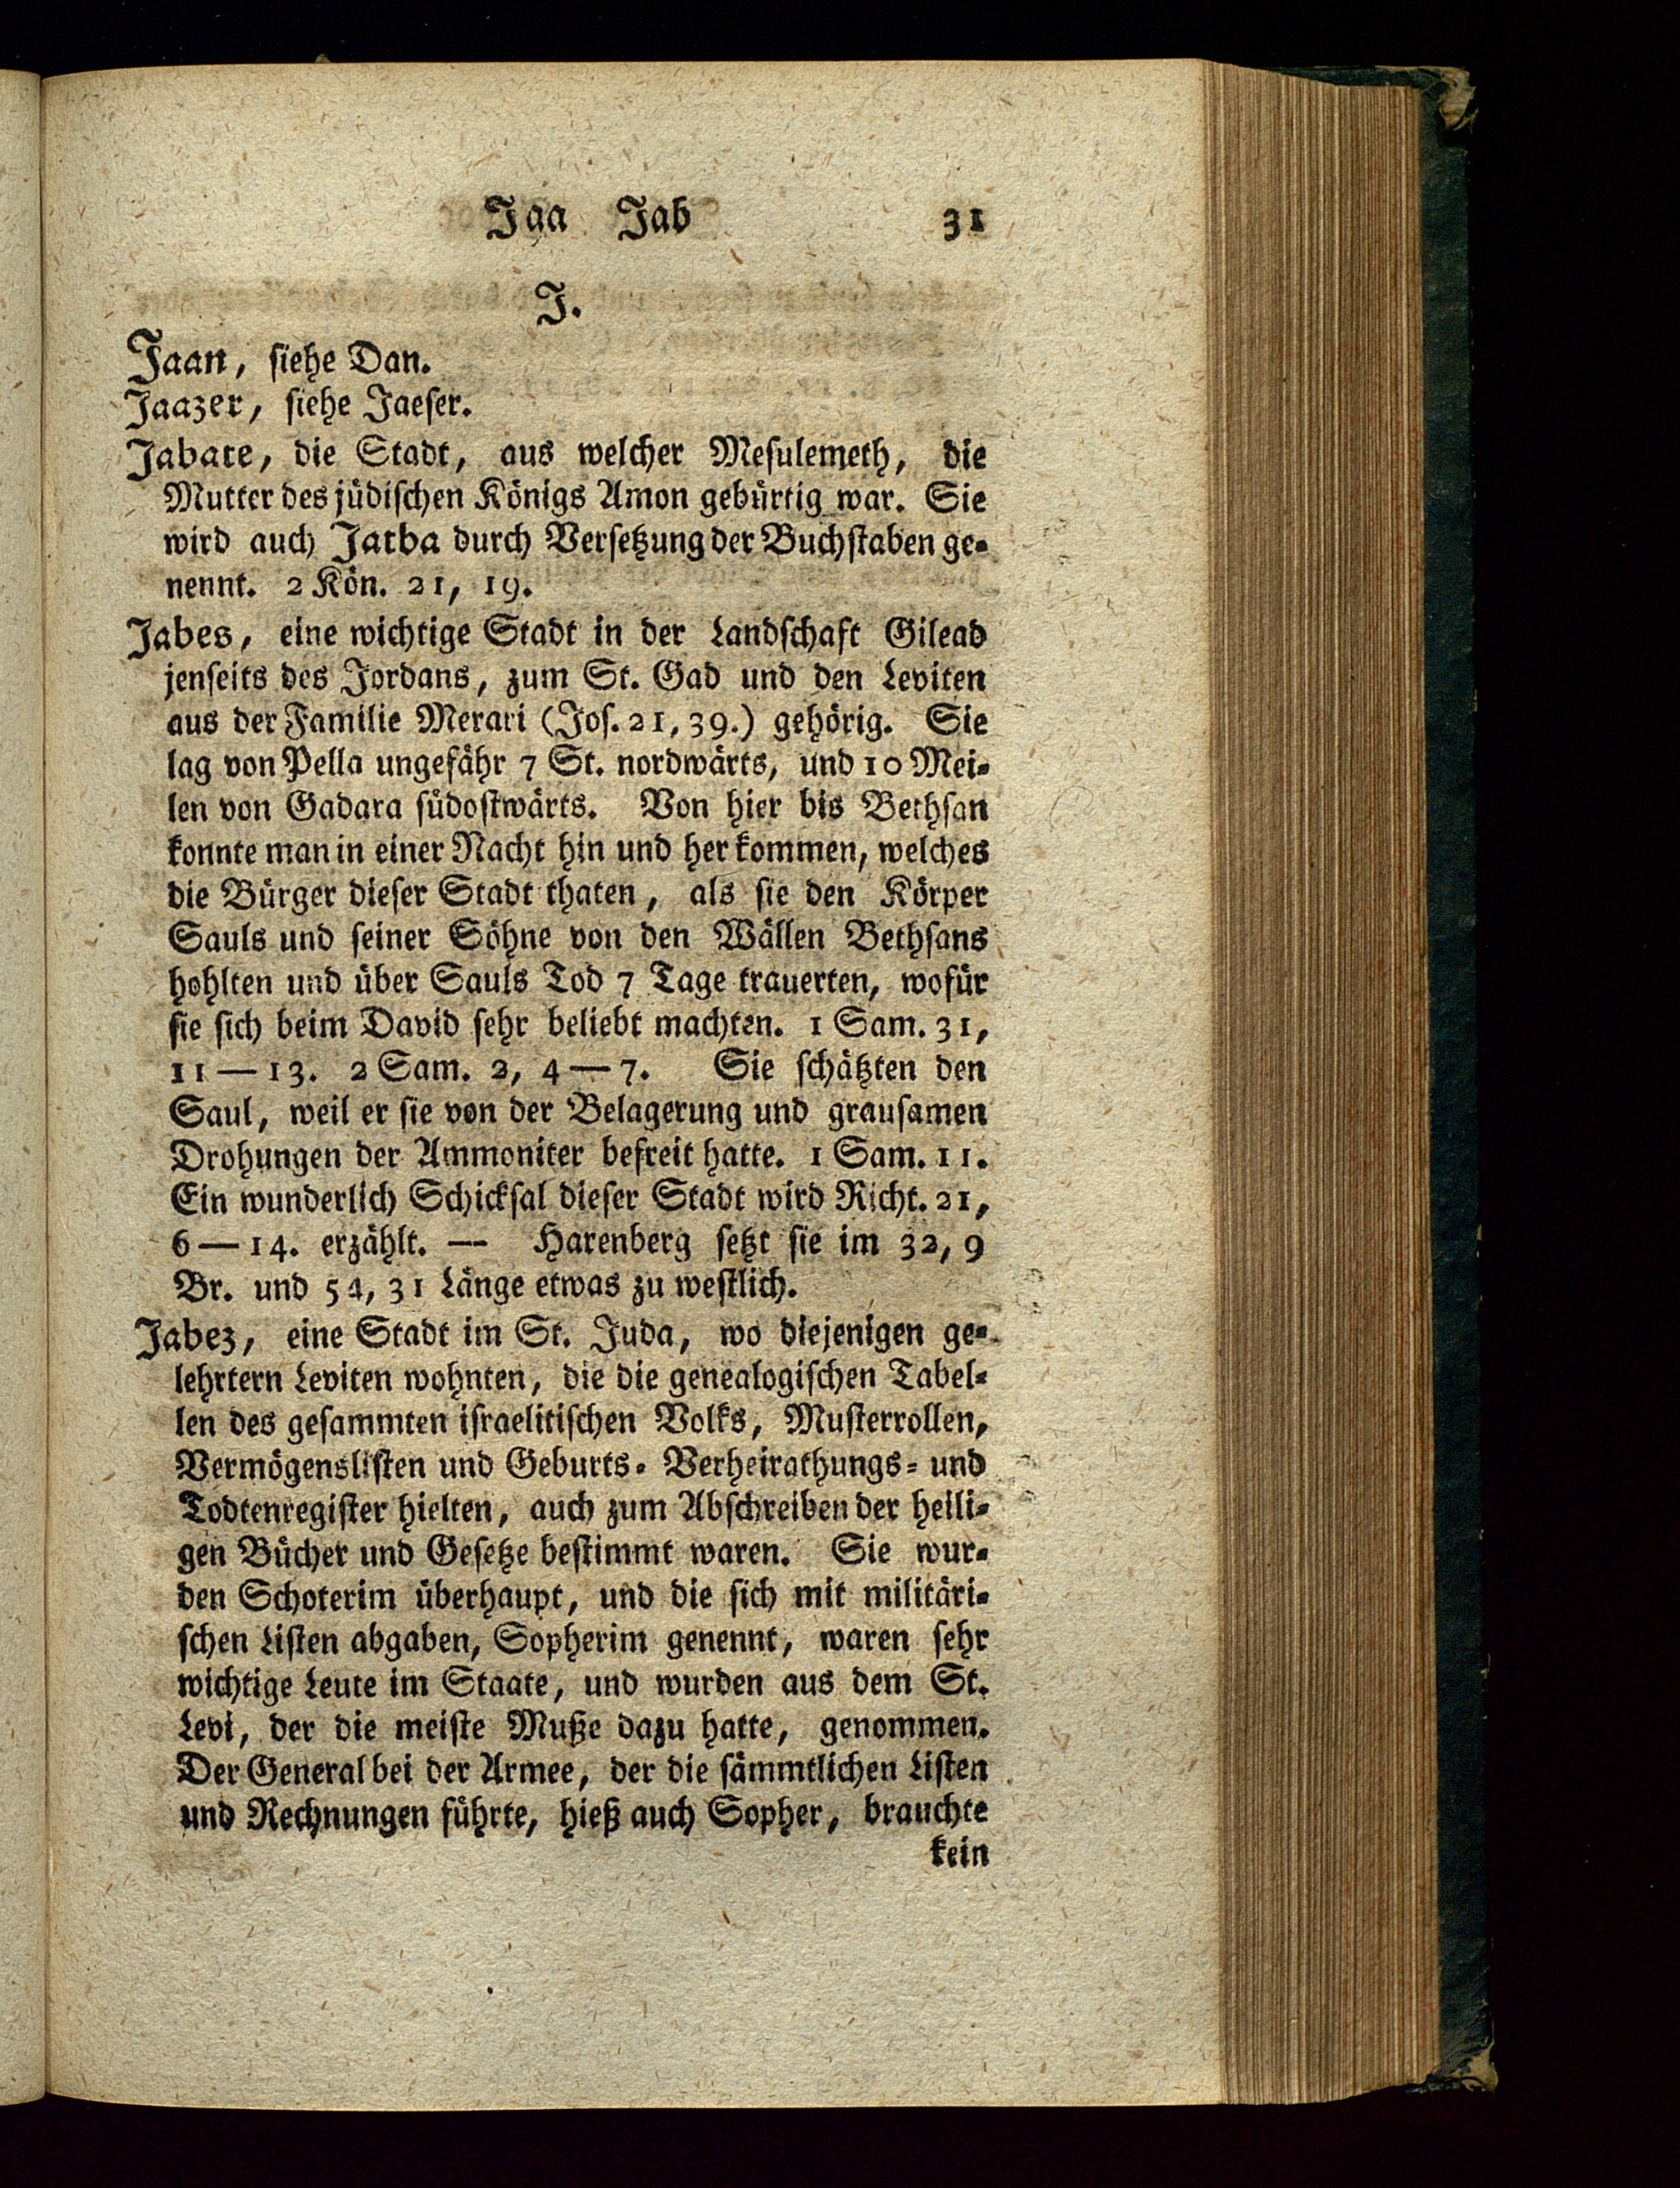 Jaa Jab 31
J.
Jaan, siehe Dan.
Jaazer, siehe Jaeser.
Jabate, die Stadt, aus welcher Mesulemeth, die
Mutter des jüdischen Königs Amon gebürtig war. Sie
wird auch Jatba durch Versetzung der Buchstaben ge-
nennt. 2 Kön. 21, 19.
Jabes, eine wichtige Stadt in der Landschaft Gilead
jenseits des Jordans, zum St. Gad und den Leviten
aus der Familie Merari (Jos. 21, 39.) gehörig. Sie
lag von Pella ungefähr 7 St. nordwärts, und 10 Mei-
len von Gadara südostwärts. Von hier bis Bethsan
konnte man in einer Nacht hin und her kommen, welches
die Bürger dieser Stadt thaten, als sie den Körper
Sauls und seiner Söhne von den Wällen Bethsans
hohlten und über Sauls Tod 7 Tage trauerten, wofür
sie sich beim David sehr beliebt machten. 1 Sam. 31,
11—13. 2 Sam. 2, 4—7. Sie schätzten den
Saul, weil er sie von der Belagerung und grausamen
Drohungen der Ammoniter befreit hatte. 1 Sam. 11.
Ein wunderlich Schicksal dieser Stadt wird Richt. 21,
6—14. erzählt. — Harenberg setzt sie im 32, 9
Br. und 54, 31 Länge etwas zu westlich.
Jabez, eine Stadt im St. Juda, wo diejenigen ge-
lehrtern Leviten wohnten, die die genealogischen Tabel-
len des gesammten israelitischen Volks, Musterrollen,
Vermögenslisten und Geburts- Verheirathungs- und
Todtenregister hielten, auch zum Abschreiben der heili-
gen Bücher und Gesetze bestimmt waren. Sie wur-
den Schoterim überhaupt, und die sich mit militäri-
schen Listen abgaben, Sopherim genennt, waren sehr
wichtige Leute im Staate, und wurden aus dem St.
Levi, der die meiste Muße dazu hatte, genommen.
Der General bei der Armee, der die sämmtlichen Listen
und Rechnungen führte, hieß auch Sopher, brauchte
kein